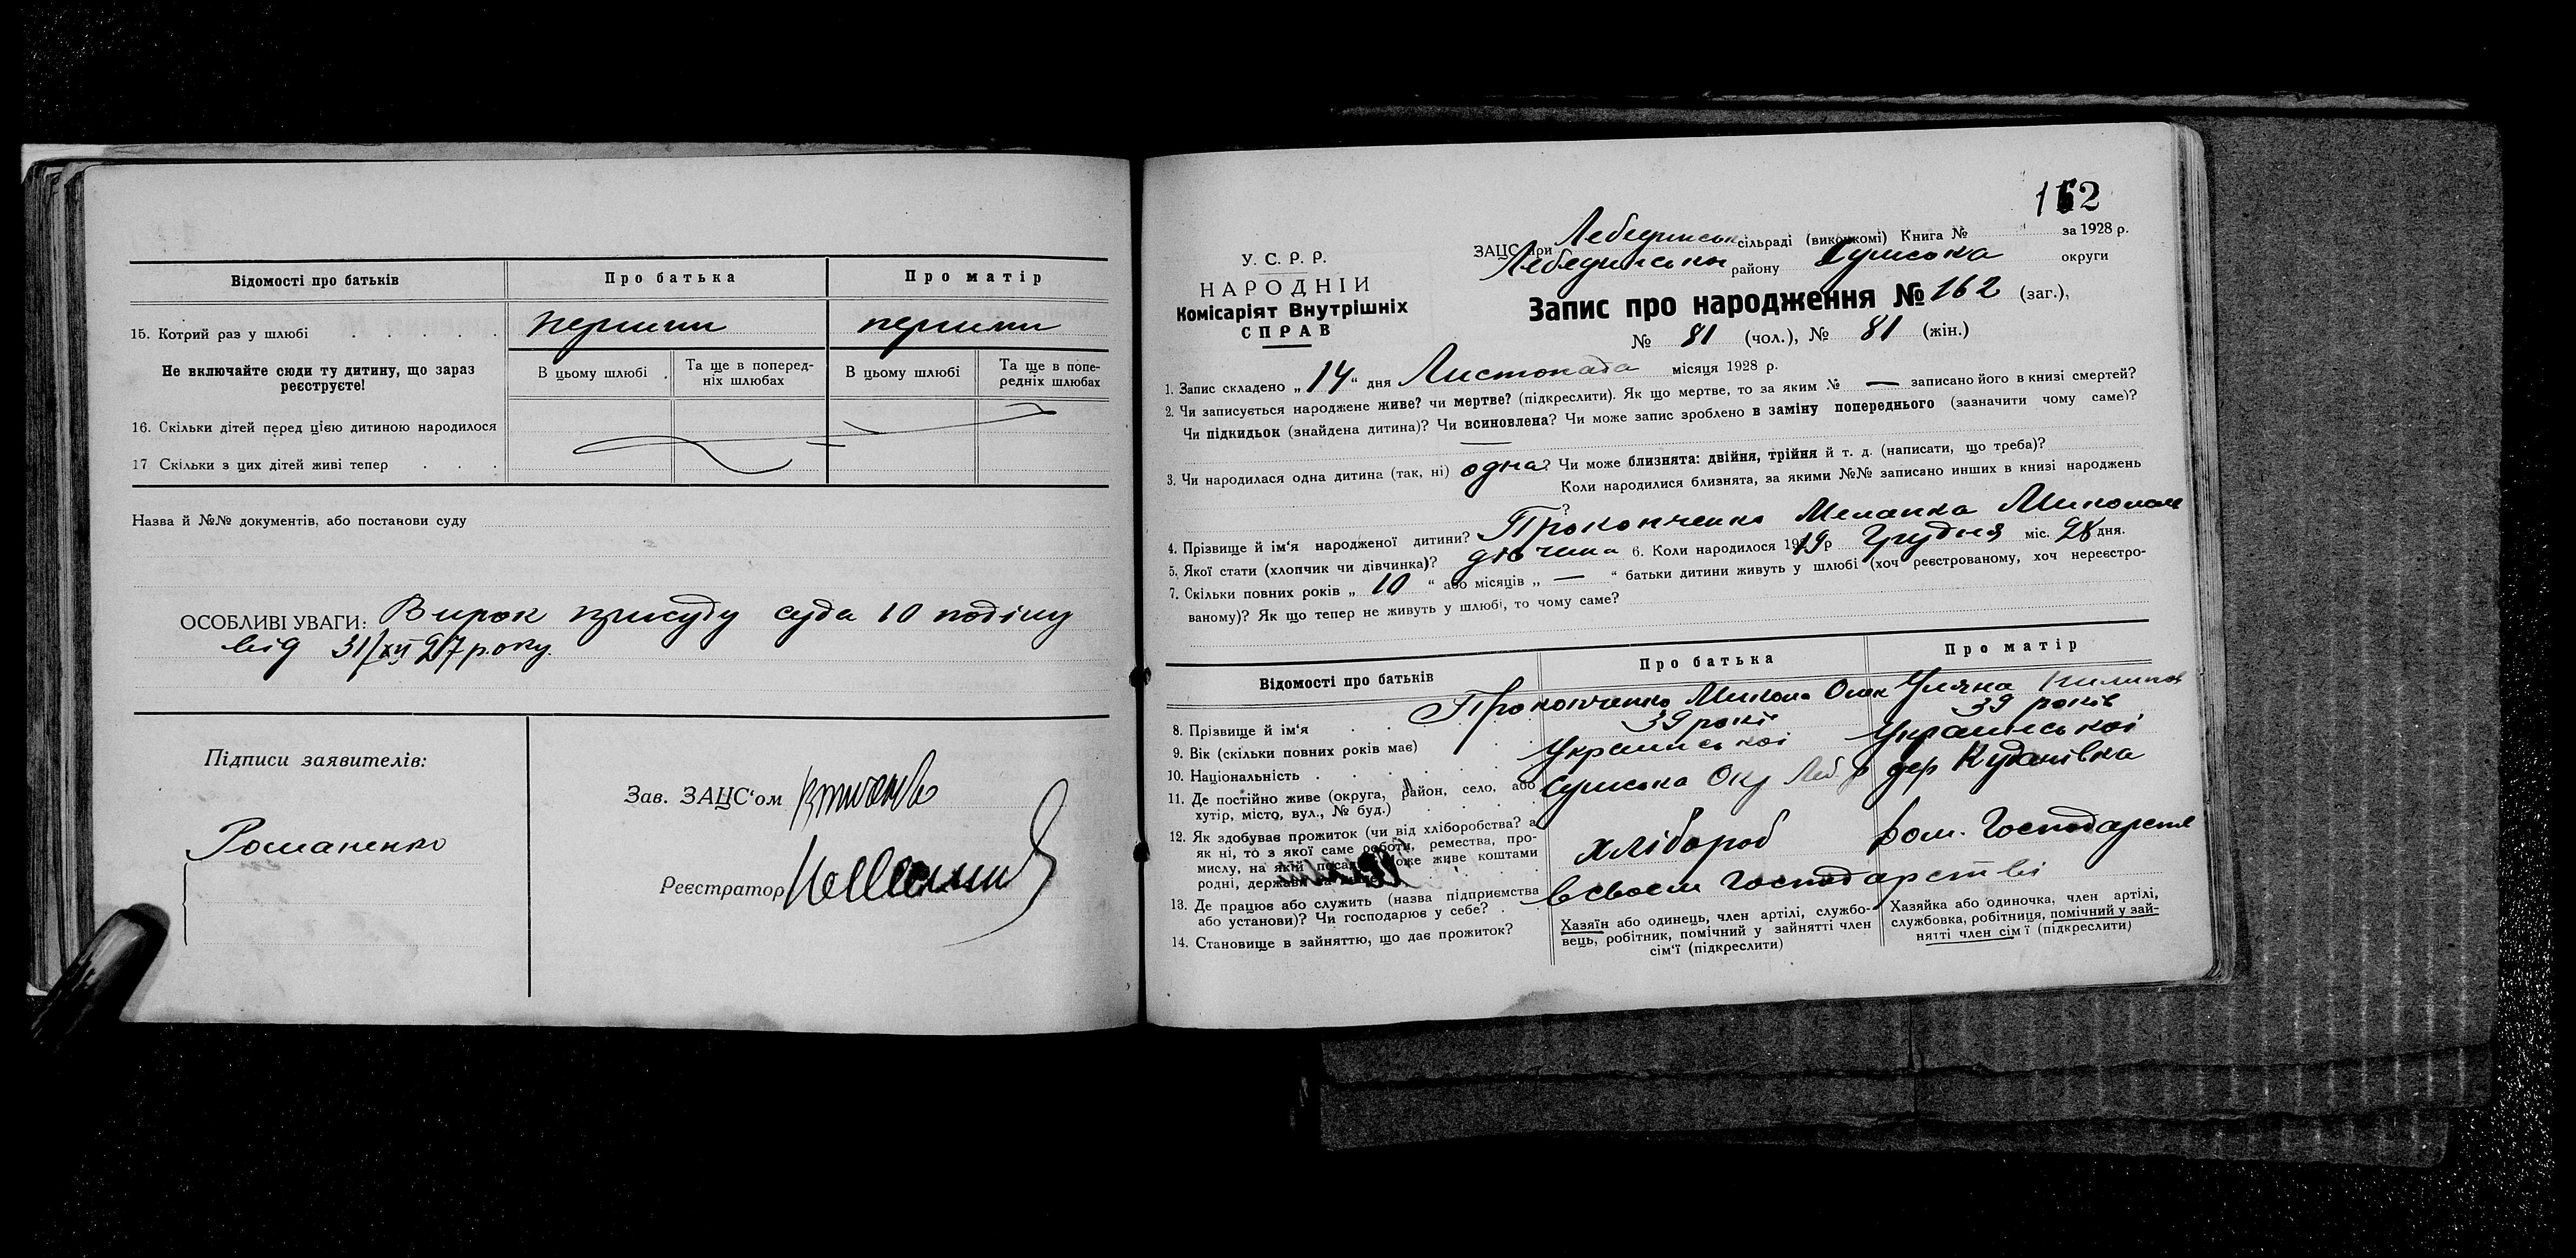 Відомості про батьків Про батька Про матір
15. Котрий раз у шлюбі . . . . . першим першим
Не включайте сюди ту дитину, що зараз реєструєте!
В цьому шлюбі Та ще в поперед-ніх шлюбах В цьому шлюбі Та ще в попе-редніх шлюбах
16. Скільки дітей перед цією дитиною народилося
17 Скільки з цих дітей живі тепер . . .
Назва й №№ документів, або постанови суду
ОСОБЛИВІ УВАГИ: Вирок присуду суда 10 
від 31/XII 27 року.
Підписи заявителів:
Романенко
Зав. ЗАЦС‘ом
Реєстратор
162
У. С. Р. Р.
НАРОДНІЙ
Комісаріят Внутрішніх
СПРАВ
ЗАЦС при Лебединськ сільраді (виконкомі) Книга № за 1928 р.
Лебединськи району Сумська округи
Запис про народження № 162 (заг.),
№ 81 (чол.), № 81 (жін.)
1. Запис складено „14“ дня Листопада місяця 1928 р.
2. Чи записується народжене живе? чи мертве? (підкреслити). Як що мертве, то за яким № — записано його в книзі смертей?
Чи підкидьок (знайдена дитина)? Чи всиновлена? Чи може запис зроблено в заміну попереднього (зазначити чому саме)?
3. Чи народилася одна дитина (так, ні) одна? Чи може близнята: двійня, трійня й т. д. (написати, що треба)?
Коли народилися близнята, за якими №№ записано инших в книзі народжень
?
4. Прізвище й ім‘я народженої дитини? Прокопченко Меланка Микола
5. Якої стати (хлопчик чи дівчинка)? дівчина 6. Коли народилося 1919 р Грудня міс. 28 дня.
7. Скільки повних років „ 10 “ або місяців „ — “ батьки дитини живуть у шлюбі (хоч реєстрованому, хоч нереєстро-
ваному)? Як що тепер не живуть у шлюбі, то чому саме?
Відомості про батьків Про батька Про матір
8. Прізвище й ім‘я . . Прокопченко Микола Уляна
9. Вік (скільки повних років має) 39 рокі 39 років
10. Національність . . . . . Української Української
11. Де постійно живе (округа, район, село, або хутір, місто, вул., № буд.) Сумська Окр Леб. р дер Куданівка
12. Як здобуває прожиток (чи від хліборобства? а
як ні, то з якої саме роботи, ремества, про-
мислу, на якій посаді може живе коштами
родні, держави
хлібороб дом. Господарстві
13. Де працює або служить (назва підприємства або установи)? Чи господарює у себе? . в своем господарстві
14. Становище в зайняттю, що дає прожиток?
Хазяїн або одинець, член артілі, службо-
вець, робітник, помічний у зайнятті член
сім‘ї (підкреслити)
Хазяйка або одиночка, член артілі,
службовка, робітниця, помічний у зай-
нятті член сім‘ї (підкреслити)